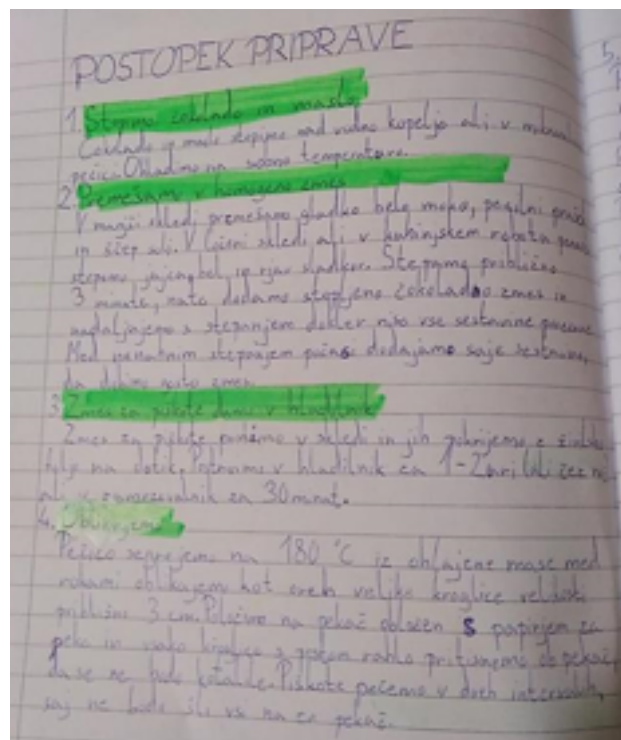 POSTOPEK PRIPRAVE
1. Stopimo čokolado in maslo
Čokolado in maslo stopimo nad vodno kopeljo ali v
pečici. Ohladimo na sobno temperaturo.
2. Premešamo v homogeno zmes
V manjši skledi premešamo gladko belo moko, pecilni
in ščep soli. V ločeni skledi ali v kuhinjskem robotu
stepamo jajca, bel in rjav sladkor. Stepamo približno
3 minute, nato dodamo stopljeno čokoladno zmes in
nadaljujemo s stepanjem dokler niso vse sestavine
Med stepanjem počasi dodajamo suhe sestavine,
da dobimo gosto zmes.
3. Zmes za piškote damo v hladilnik
Zmes za piškote v skledi in jih pokrijemo z
na dotik. v hladilnik za 1-2 uri ali čez
ali v zamrzovalnik za 30 minut.
4. Oblikujemo
Pečico segrejemo na 180 °C iz ohlajene mase med
rokami oblikujemo kot oreh velike kroglice velikosti
približno 3 cm. Položimo na pekač obložen s papirjem za
peko in vsako kroglico s rahlo pritisnemo ob pekač,
da se ne bodo kotalile. Piškote pečemo v dveh intervalih,
saj ne bodo šli vsi na en pekač.
5.